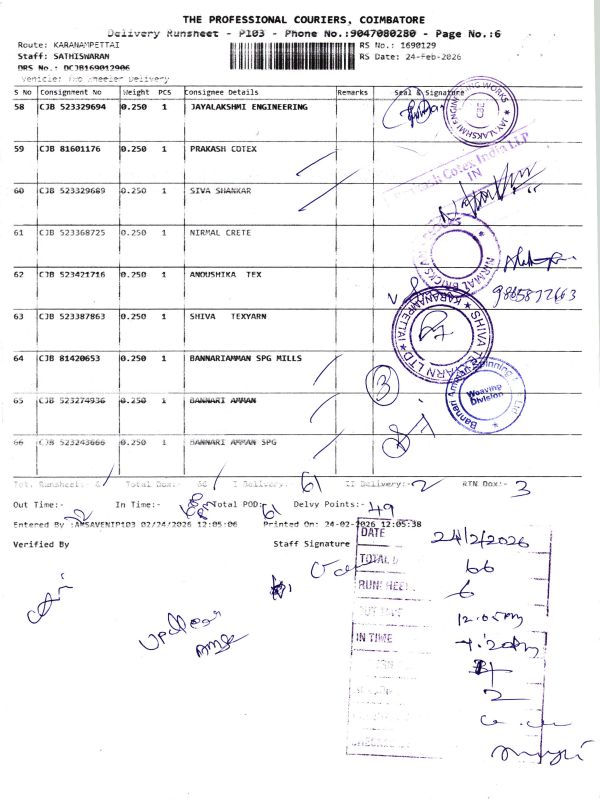 THE PROFESSIONAL COURIERS, COIMBATORE
Delivery Runsheet - P103 - Phone No.:9047080280 - Page No.:6
Route: KARANAMPETTAI
RS No.: 1690129
Staff: SATHISWARAN
RS Date: 24-Feb-2026
DRS No.: DCJB169012906
Vehicle: Two Wheeler Delivery
S No Consignment No Weight PCS Consignee Details Remarks Seal & Signature
58 CJB 523329694 0.250 1 JAYALAKSHMI ENGINEERING
JAYALAKSHMI ENGINEERING WORKS CBE
59 CJB 81601176 0.250 1 PRAKASH COTEX
Prakash Cotex India LLP
IN
60 CJB 523329689 0.250 1 SIVA SHANKAR
61 CJB 523368725 0.250 1 NIRMAL CRETE
NIRMAL BRICKS
62 CJB 523421716 0.250 1 ANOUSHIKA TEX
63 CJB 523387863 0.250 1 SHIVA TEXYARN
SHIVA TEXYARN LTD KARANAMPETTAI
64 CJB 81420653 0.250 1 BANNARIAMMAN SPG MILLS
3
65 CJB 523274936 0.250 1 BANNARI AMMAN
Bannari Amman Spinning Ltd
Weaving
Division
66 CJB 523243666 0.250 1 BANNARI AMMAN SPG
Tot. Runsheet:- 6 Total Dox:- 66 I Delivery:- 61 II Delivery:- 2 RTN Dox:- 3
Out Time:- In Time:- Total POD:- 61 Delvy Points:- 49
Entered By :AMSAVENIP103 02/24/2026 12:05:06 Printed On: 24-02-2026 12:05:38
Verified By Staff Signature
DATE 24/2/2026
TOTAL 66
RUNSHEET 6
OUT TIME 12.05 PM
IN TIME 4:20 PM
2